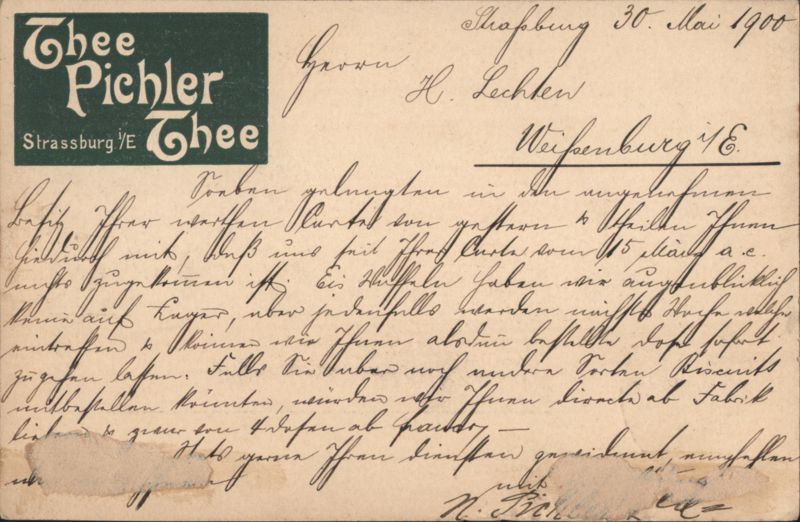 Thee
Pichler
Thee
Strassburg i/E
Straßburg 30. Mai 1900
Herrn
H. Lechten
Weißenburg i/E.
Soeben gelangten in den angenehmen
Besitz Ihrer werthen Carte von gestern & theilen Ihnen
hiedurch mit, daß uns seit Ihrer Carte vom 15 März a. c.
nichts zugekommen ist. Eis Waffeln haben wir augenblicklich
keine auf Lager, aber jedenfalls werden nächste Woche welche
eintreffen & können wir Ihnen alsdann bestellte Dose sofort
zugehen lassen. Falls Sie aber noch andere Sorten Biscuits
mitbestellen könnten, würden wir Ihnen directe ab Fabrik
liefern & zwar von 4 Dosen ab franco, —
Stets gerne Ihren Diensten gewidmet, empfehlen
mit
N. Pichler